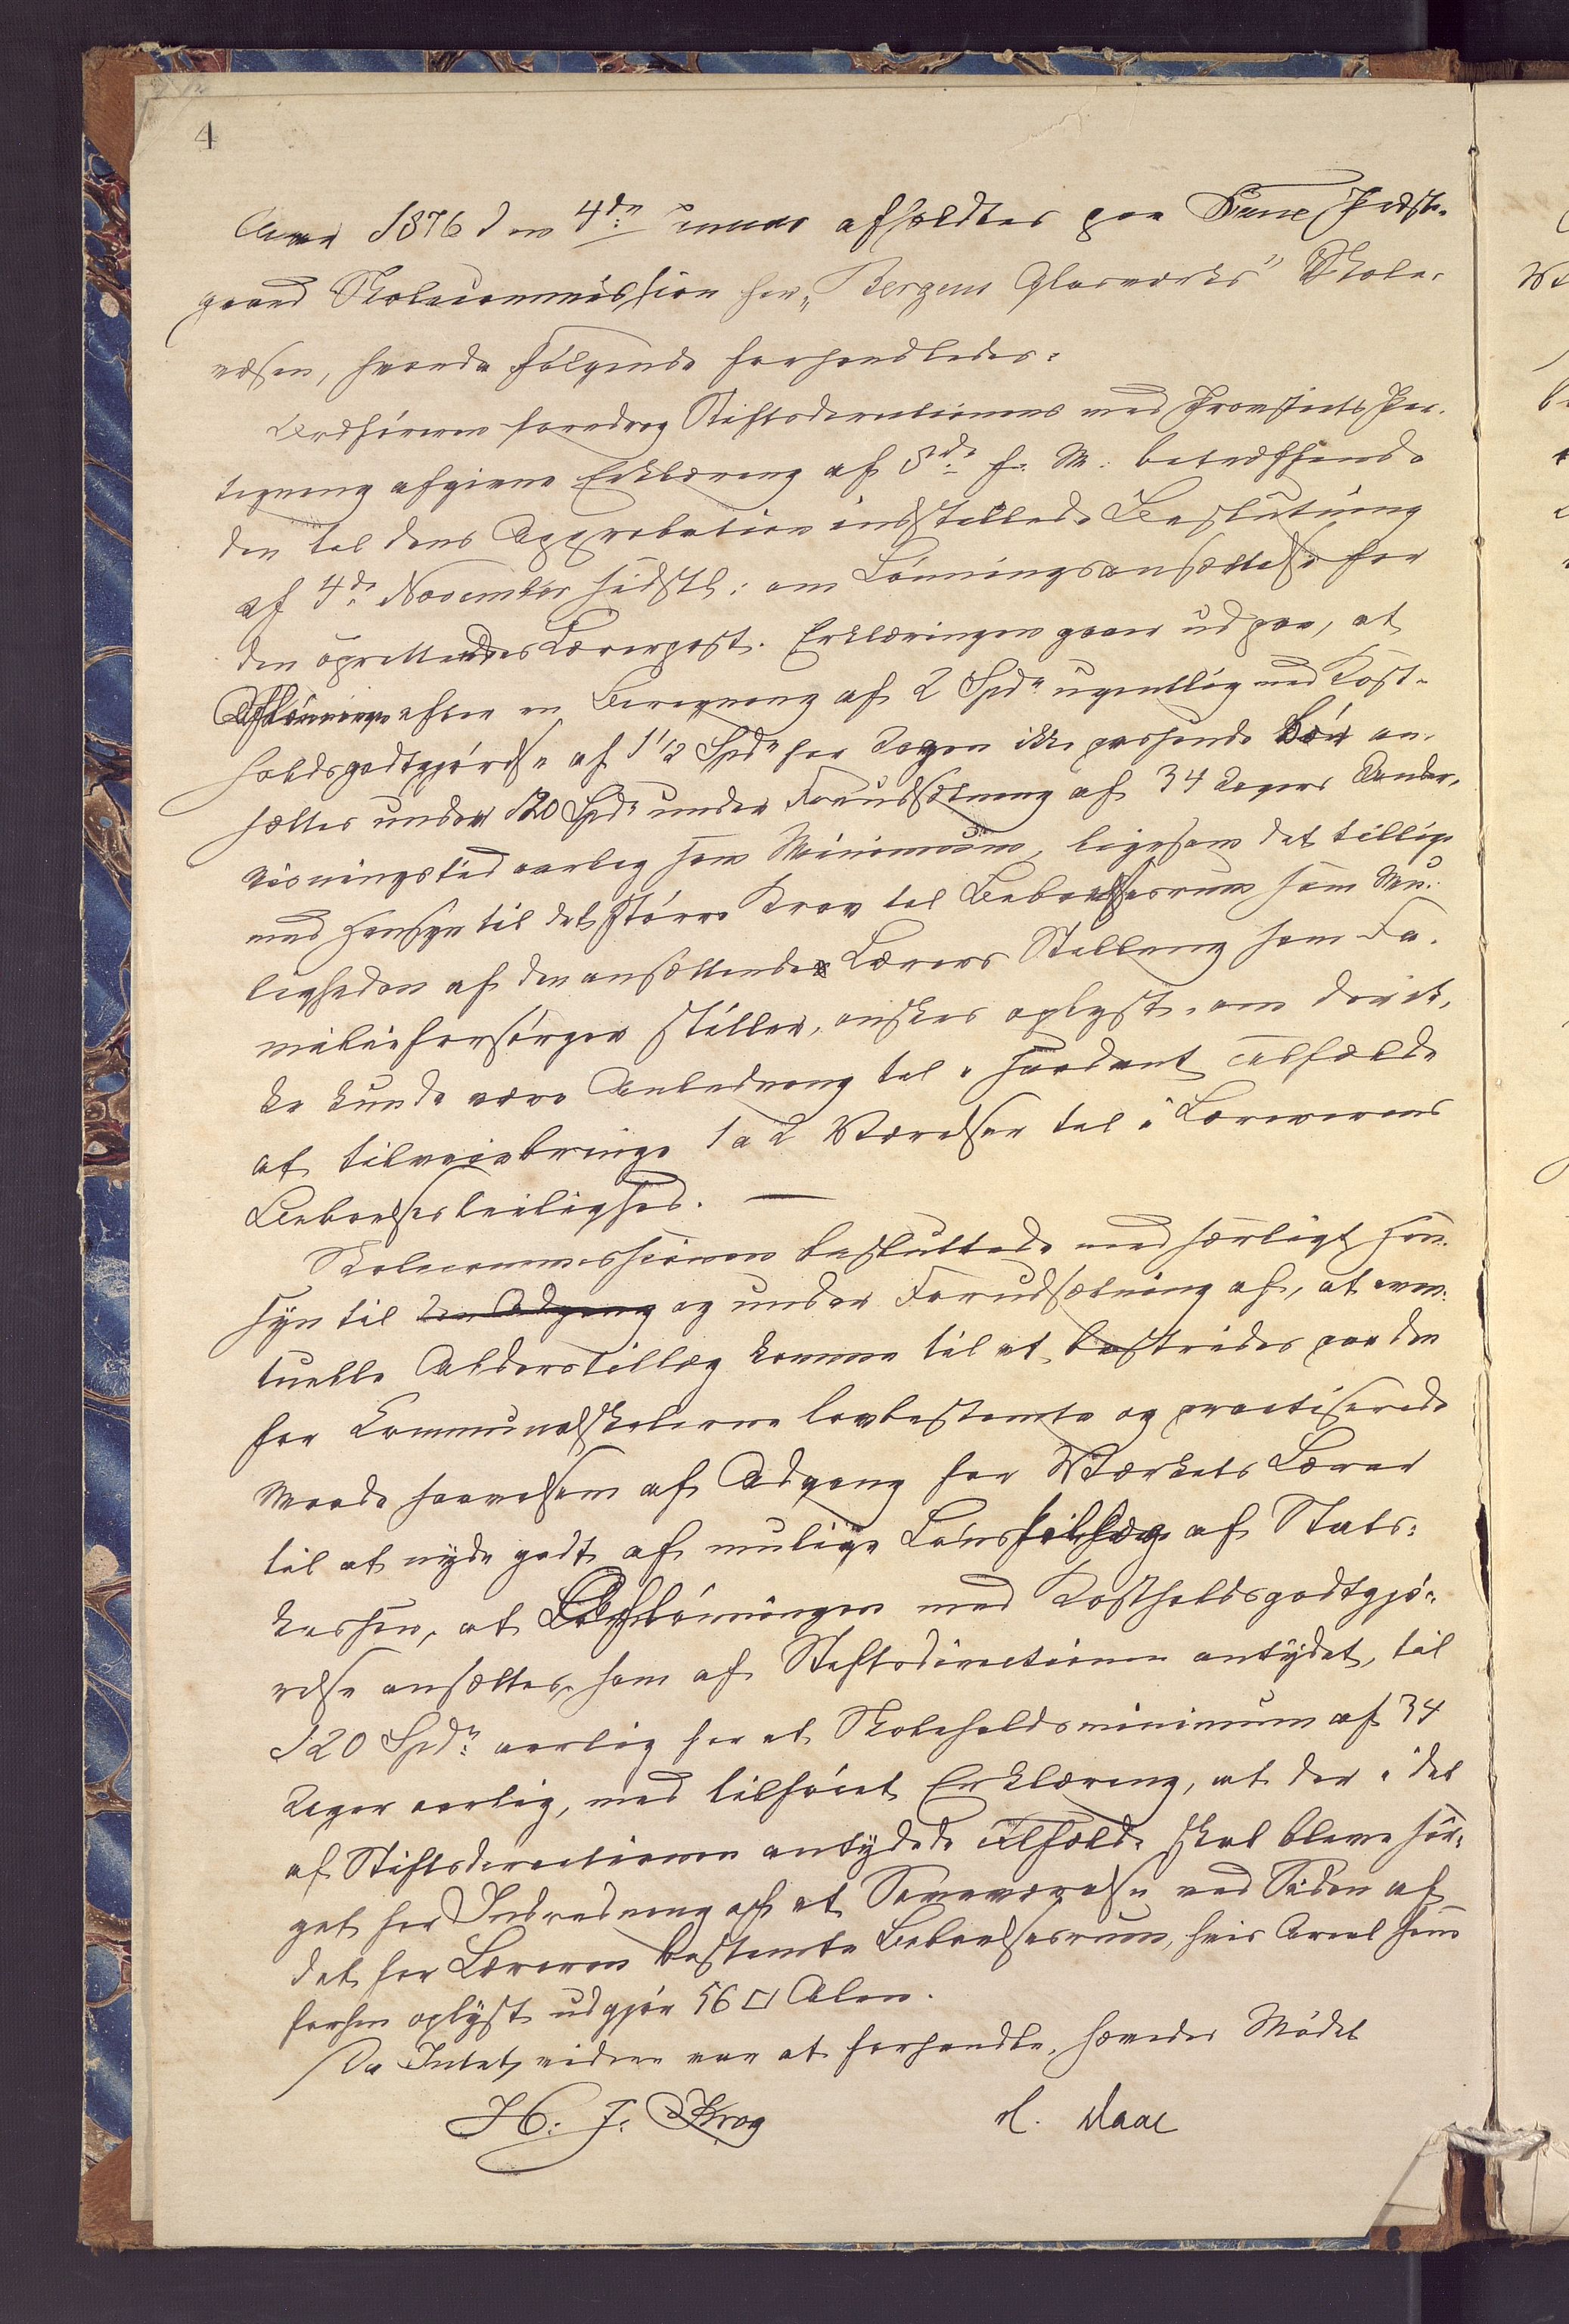 4
Anno 1876 den 4de Januar afholdtes paa Fane Præste-
gaard Skolecommission for "Bergens Glasværks" Skole-
væsen, hvorda følgende forhandledes:
Ordføreren foredrog Stiftsdirectionens med Provstiets Paa-
tegning afgivne Erklæring af 3de f. M. betræffende
den til dens Approbation indstillede Beslutning
af 4de November sidstl: om Lønningsansættelse for
den oprettendes Lærerpost. Erklæringen gaar ud paa, at
Aflønningen efter en Beregning af 2 Spdr ugentlig med Kost-
holdsgodtgjørelse af 1 1/2 Spdr for Ugen ikke passende bør an-
sættes under 120 Spdr under Forudsætning af 34 Ugers Under-
visningstid aarlig som Minimum, ligesom det tillige
med Hensyn til det større Krav til Beboelsesrum som Mu-
ligheden af den ansættendes Lærers Stilling som Fa-
milieforsørger stiller, ønskes oplyst, om der ik-
ke kunde være Anledning til i saadant Tilfælde
at tilveiebringe 1 a 2 Værelser til i Lærerens
Beboelsesleilighed. —
Skolecommissionen besluttede med særligt Hen-
syn til den Adgang og under Forudsætning af, at even-
tuelle Alderstillæg komme til at bestrides paa den
for Kommunalskolerne lovbestemte og practiserede
Maade saavelsom af Adgang for Værkets Lærer
til at nyde godt af mulige Lønstillæg af Stats-
kassen, at Aflønningen med Kostholdsgodtgjø-
relse ansættes, som af Stiftsdirectionen antydet, til
120 Spdr aarlig for et Skoleholdsminimum af 34
Uger aarlig, med tilføiet Erklæring, at der i det
af Stiftsdirectionen antydede Tilfælde skal blive sør-
get for Indredning af et Soveværelse ved Siden af
det for Læreren bestemte Beboelsesrum, hvis Areal som
forhen oplyst udgjør 56 □ Alen.
Da Intet videre var at forhandle, hævedes Mødet
H. J. Krog M. Maae